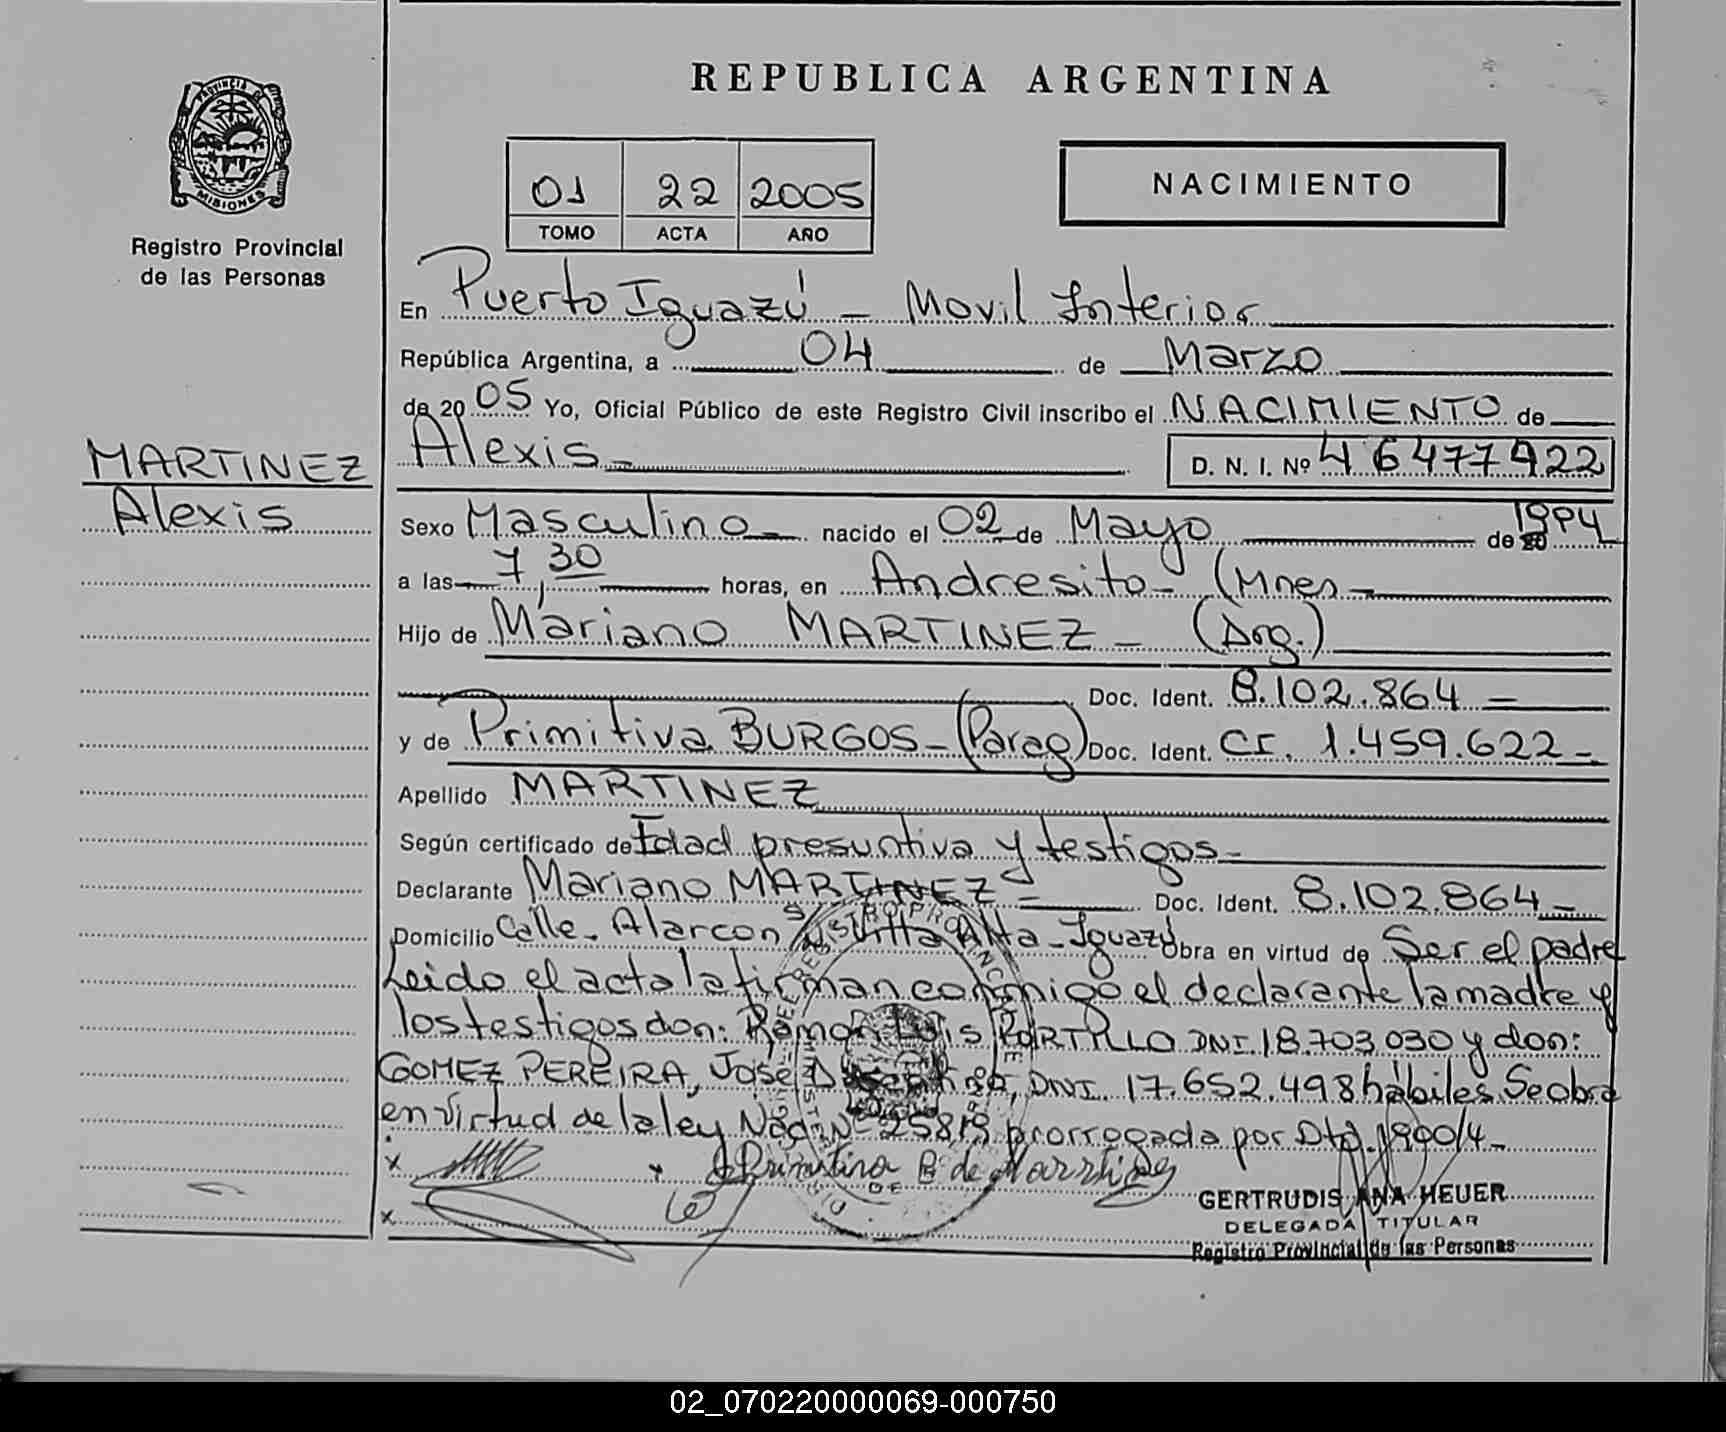 REPUBLICA ARGENTINA
PROVINCIA DE
MISIONES
Registro Provincial
de las Personas
NACIMIENTO
01 22 2005
TOMO ACTA AÑO
En Puerto Iguazú - Movil Interior
República Argentina, a 04 de Marzo
de 2005 Yo, Oficial Público de este Registro Civil inscribo el NACIMIENTO de
MARTINEZ
Alexis
Alexis - D. N. I. Nº 46477922
Sexo Masculino - nacido el 02 de Mayo de 20 1994
a las 7,30 horas, en Andresito - (Mnes -
Hijo de Mariano MARTINEZ - (Arg.)
Doc. Ident. 8.102.864 =
y de Primitiva BURGOS - (Parag) Doc. Ident. CI. 1.459.622 -
Apellido MARTINEZ
Según certificado de Edad presuntiva y testigos -
Declarante Mariano MARTINEZ = Doc. Ident. 8.102.864 -
Domicilio Calle - Alarcon S/N Villa Alta - Iguazú Obra en virtud de Ser el padre
Leido el acta la firman conmigo el declarante la madre y
los testigos don: Ramon Luis PORTILLO DNI. 18.703.030 y don:
GOMEZ PEREIRA, José DNI. 17.652.498 hábiles. Se obra
en virtud de la ley Nac. Nº 25819 prorrogada por Dto. 1900/4 -
x x Primitiva B de Martinez
x
GERTRUDIS ANA HEUER
DELEGADA TITULAR
Registro Provincial de las Personas
02_070220000069-000750